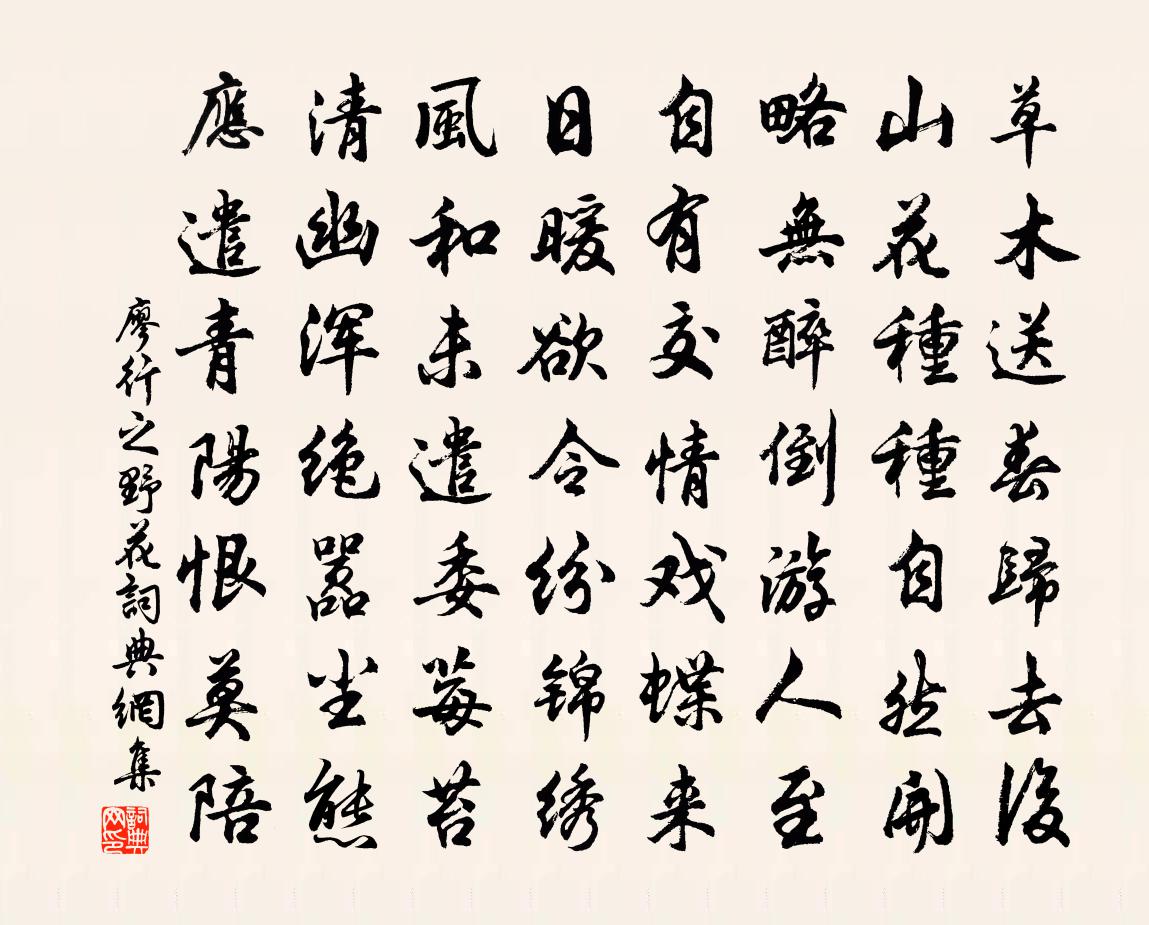 草木送春歸去後
山花種種自然開
略無醉倒游人至
自有交情戏蝶来
日暖欲令纷锦绣
風和未遣委莓苔
清幽浑绝嚣尘態
應遣青陽恨莫陪
廖行之野花詞典網集
詞典网印